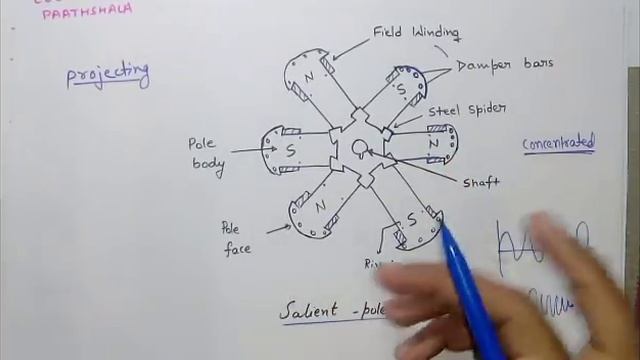 PAATHSHALA
projecting
Field Winding
Damper bars
Steel spider
Pole
body
N
S
N
S
N
S
Concentrated
Shaft
Pole
face
Salient - pole